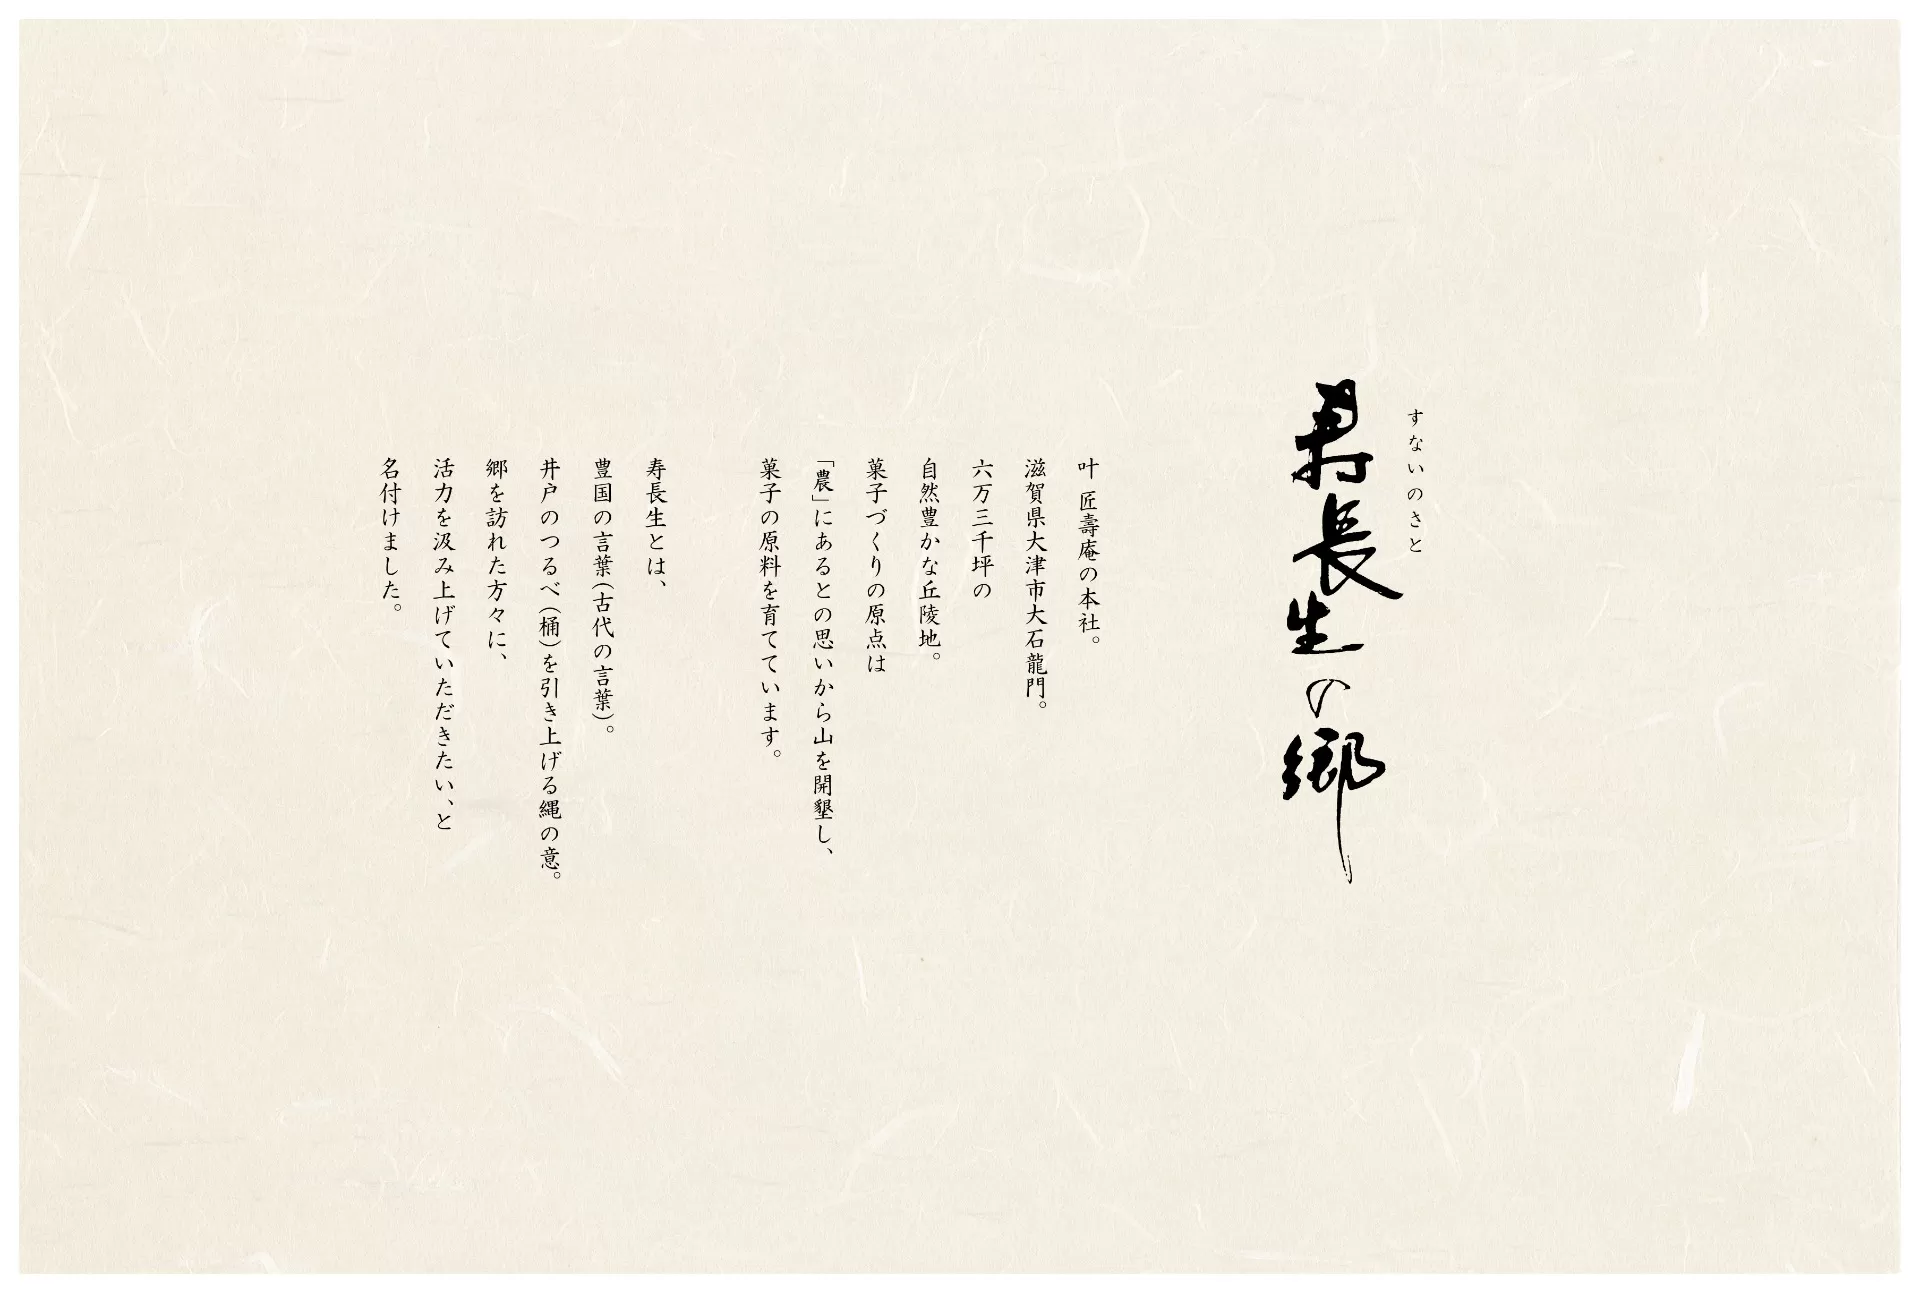 すないのさと
寿長生の郷
叶 匠壽庵の本社。
滋賀県大津市大石龍門。
六万三千坪の
自然豊かな丘陵地。
菓子づくりの原点は
「農」にあるとの思いから山を開墾し、
菓子の原料を育てています。
寿長生とは、
豊国の言葉(古代の言葉)。
井戸のつるべ(桶)を引き上げる縄の意。
郷を訪れた方々に、
活力を汲み上げていただきたい、と
名付けました。